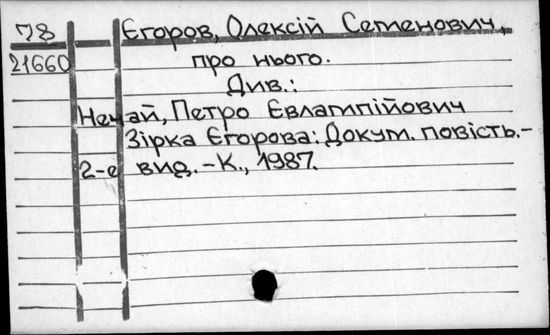 78 Єгоров, Олексій Семенович,
21660 про нього.
Див.:
Нечай, Петро Євлампійович
Зірка Єгорова: Докум. повість.-
2-е вид. -К., 1987.